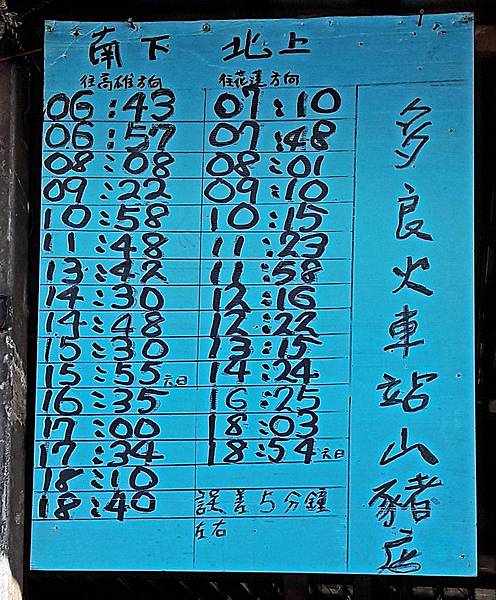 南下 北上
往高雄方向 往花蓮方向
06:43 07:10
06:57 07:48
08:08 08:01
09:22 09:10
10:58 10:15
11:48 11:23
13:42 11:58
14:30 12:16
14:48 12:22
15:30 13:15
15:55 六日 14:24
16:35 16:25
17:00 18:03
17:34 18:54 六日
18:10
18:40
誤差5分鐘
左右
多良火車站山豬店